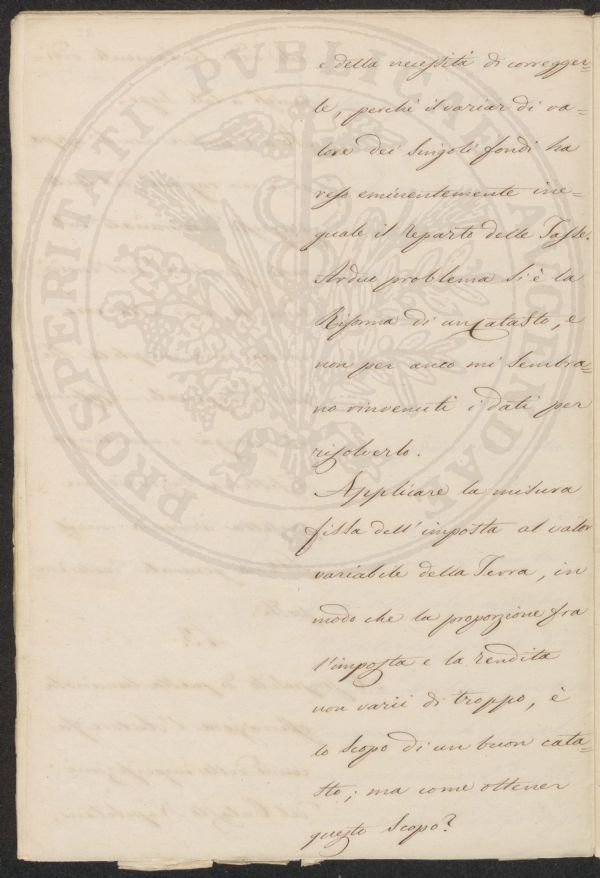 e della necessità di corregger=
le, perchè il variar di va=
lore dei singoli fondi ha
reso eminentemente ine=
guale il reparto delle Tasse.
Arduo problema si è la
Riforma di un Catasto, e
non per anco mi sembra=
no rinvenuti i dati per
risolverlo.
Applicare la misura
fissa dell'imposta al valor
variabile della Terra, in
modo che la proporzione fra
l'imposta e la rendita
non varii di troppo, è
lo scopo di un buon cata=
sto; ma come ottener
questo scopo?
PROSPERITATI PVBLICAE AVGENDAE